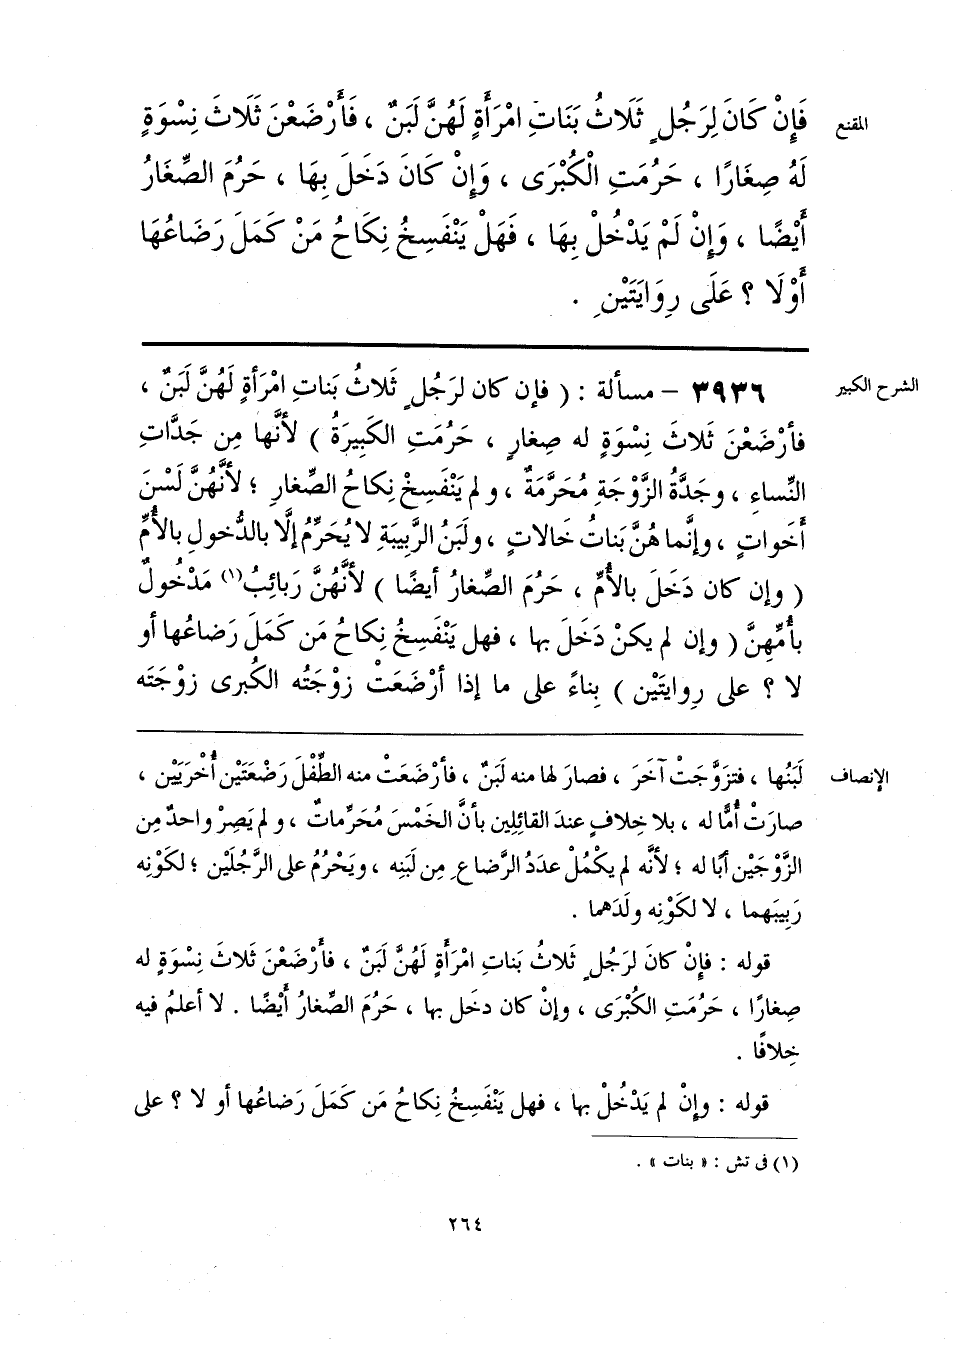 المقنع
فَإِنْ كَانَ لِرَجُلٍ ثَلَاثُ بَنَاتِ امْرَأَةٍ لَهُنَّ لَبَنٌ ، فَأَرْضَعْنَ ثَلَاثَ نِسْوَةٍ
لَهُ صِغَارًا ، حَرُمَتِ الْكُبْرَى ، وَإِنْ كَانَ دَخَلَ بِهَا ، حَرُمَ الصِّغَارُ
أَيْضًا ، وَإِنْ لَمْ يَدْخُلْ بِهَا ، فَهَلْ يَنْفَسِخُ نِكَاحُ مَنْ كَمَلَ رَضَاعُهَا
أَوْلَا ؟ عَلَى رِوَايَتَيْنِ .
الشرح الكبير
٣٩٣٦ – مسألة : ( فإن كان لرَجُلٍ ثَلاثُ بَناتِ امْرَأةٍ لَهُنَّ لَبَنٌ ،
فأرْضَعْنَ ثَلاثَ نِسْوَةٍ له صِغارٍ ، حَرُمَتِ الكَبِيرَةُ ) لأنَّها مِن جَدَّاتِ
النِّساءِ ، وجَدَّةُ الزَّوْجَةِ مُحَرَّمَةٌ ، و لم يَنْفَسِخْ نِكاحُ الصِّغارِ ؛ لأنَّهُنَّ لَسْنَ
أخَواتٍ ، وإنَّما هُنَّ بَناتُ خَالاتٍ ، ولَبَنُ الرَّبِيبَةِ لا يُحَرِّمُ إلَّا بالدُّخولِ بالأُمِّ
( وإن كان دَخَلَ بالأُمِّ ، حَرُمَ الصِّغارُ أيضًا ) لأنَّهُنَّ رَبائِبُ(١) مَدْخُولٌ
بأُمِّهِنَّ ( وإن لم يكنْ دَخَلَ بها ، فهل يَنْفَسِخُ نِكاحُ مَن كَمَلَ رَضاعُها أو
لا ؟ على رِوايتَيْن ) بِناءً على ما إذا أرْضَعَتْ زوْجَتُه الكُبرى زوْجَتَه
الإنصاف
لَبَنُها ، فتزَوَّجَتْ آخَرَ ، فصارَ لها منه لَبَنٌ ، فأرْضَعَتْ منه الطِّفْلَ رَضْعَتَيْن أُخْرَيَيْن ،
صارَتْ أُمًّا له ، بلا خِلافٍ عندَ القائِلِين بأنَّ الخَمْسَ مُحَرِّماتٌ ، و لم يَصِرْ واحدٌ مِن
الزَّوْجَيْن أبًا له ؛ لأنَّه لم يكْمُلْ عدَدُ الرَّضاعِ مِن لَبَنِه ، ويَحْرُمُ على الرَّجُلَيْن ؛ لكَوْنِه
رَبِيبَهما ، لا لكَوْنِه ولَدَهما .
قوله : فإِنْ كانَ لرَجُلٍ ثَلاثُ بَناتِ امْرَأَةٍ لَهُنَّ لَبَنٌ ، فأَرْضَعْنَ ثَلاثَ نِسْوَةٍ له
صِغارًا ، حَرُمَتِ الكُبْرَى ، وإنْ كان دخَل بها ، حَرُمَ الصِّغارُ أَيْضًا . لا أعلمُ فيه
خِلافًا .
قوله : وإِنْ لم يَدْخُلْ بها ، فهل يَنْفَسِخُ نِكاحُ مَن كَمَلَ رَضاعُها أو لا ؟ على
(١) فى تش : « بنات » .
٢٦٤